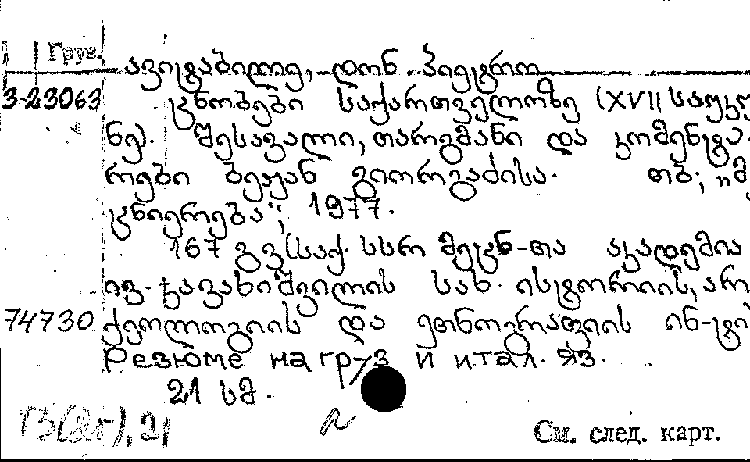 Груз.
ავიტაბილე, დონ პიეტრო
3-23063 ცნობები საქართველოზე (XVII საუკუ
ნე). შესავალი, თარგმანი და კომენტა-
რები ბეჟან გიორგაძისა. თბ., „მ
ეცნიერება", 1977.
167 გვ (საქ. სსრ მეცნ-თა აკადემია
ივ. ჯავახიშვილის სახ. ისტორიის, არ
74730 ქეოლოგიის და ეთნოგრაფიის ინ-ტი
Резюме на груз и итал. яз.
21 სმ.
См. след. карт.